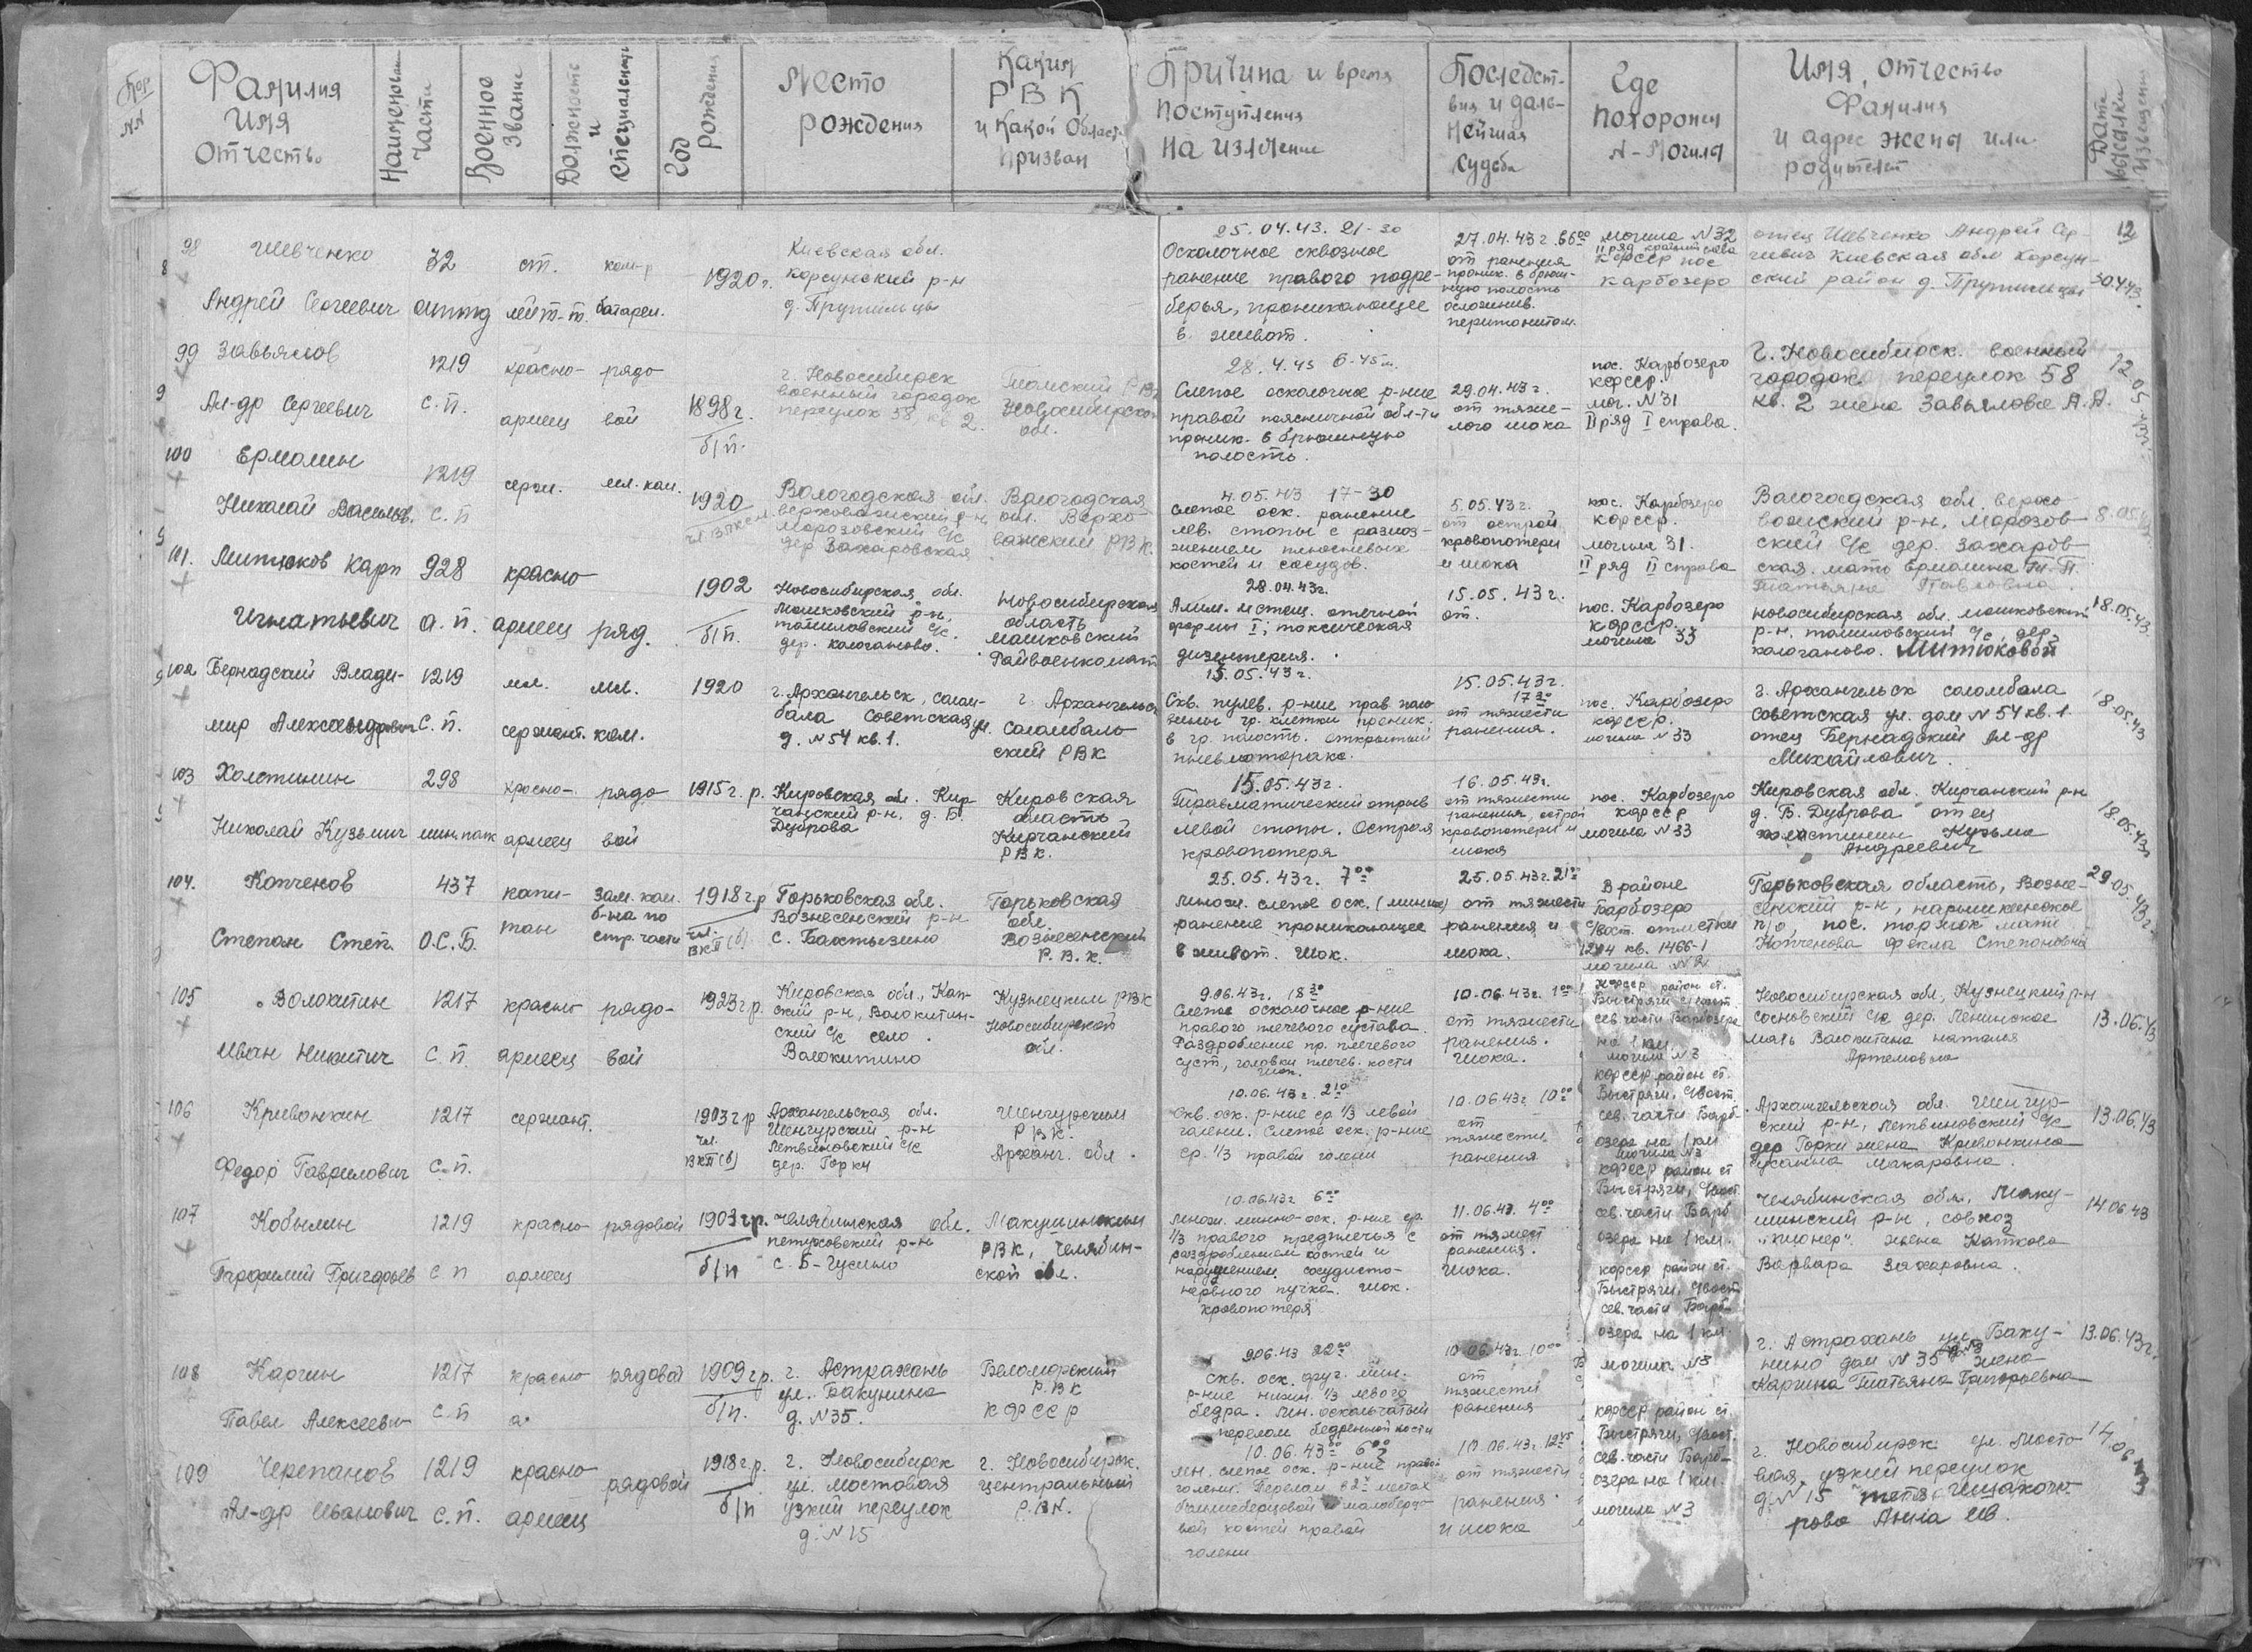 Пор. NN
Фамилия Имя Отчество
Наименован части
Военное звание
Должность и специальность
Год рождения
Место рождения
Каким РВК и какой област призван
Причина и время поступления на излечение
Последствия и дальнейшая судьба
Где похоронен N-могила
Имя, отчество Фамилия и адрес жены или родителей
Дата высылки извещения
98 Шевченко
Андрей Сергеевич
32
ст. лейт-т.
ком-р батареи.
1920 г.
Киевская обл.
Корсунский р-н
25.04.43. 21-30
Осколочное сквозное
ранение правого подре-
берья, проникающее
в живот.
27.04.43 г.
от ранения
проник. в брюш-
ную полость
осложнив.
перитонитом.
могила N 32
II ряд
КФССР пос
Карбозеро
отец Шевченко Андрей Сер-
геевич Киевская обл Корсун-
ский район
12
30.4.43.
99 Завьялов
Ал-др Сергеевич
1219
с.п.
красно-
армеец
рядо
вой
1898 г.
б/п.
г. Новосибирск
военный городок
переулок 58, кв 2.
Новосибирской
обл.
28.4.43 6-45 м.
Слепое осколочное р-ние
правой поясничной обл-ти
проник. в брюшную
полость.
29.04.43 г.
от тяже-
лого шока
пос. Карбозеро
КФССР.
мог. N 31
II ряд I справа.
г. Новосибирск. военный
городок переулок 58
кв. 2 жена Завьялова А.А.
100 Ермолин
Николай Васильев.
1219
с.п
серж.
мл. ком.
1920
Вологодская обл.
верховажский р-н
Морозовский с/с
дер Захаровская
Вологодская
обл. Верхо
важский РВК.
4.05.43 17-30
слепое оск. ранение
лев. стопы с размоз-
жением плюсневых
костей и сосудов.
5.05.43 г.
от острой
кровопотери
и шока
пос. Карбозеро
КФССР.
могила 31.
II ряд II справа
Вологодская обл. верхо
важский р-н, Морозов-
ский с/с дер. Захаров-
ская. мать Ермолина Т.П.
Татьяна Павловна
101. Митюков Карп
Игнатьевич
928
а.п.
красно
армеец
ряд.
1902
б/п.
Новосибирская обл.
Мошковский р-н,
томиловский с/с.
дер. калаганово.
Новосибирская
область
Машковский
Райвоенкомат
28.04.43 г.
Алим. истощ. отечной
формы I; токсическая
дизентерия.
15.05.43 г.
от.
пос. Карбозеро
КФССР.
могила 33
Новосибирская обл. мошковский
р-н. томиловский с/с, дер.
калаганово. Митюковой
18.05.43.
102 Бернадский Влади-
мир Александрович
1219
с.п.
мл.
сержант.
мл.
ком.
1920
г. Архангельск, Солом-
бала Советская ул.
д. N 54 кв. 1.
г. Архангельск
Соломбаль
ский РВК
15.05.43 г.
Скв. пулев. р-ние прав. поло
вины гр. клетки проник.
в гр. полость. открытый
пневмоторакс.
15.05.43 г.
17 30
от тяжести
ранения.
пос. Карбозеро
КФССР.
могила N 33
г. Архангельск Соломбала
Советская ул. дом N 54 кв. 1.
отец Бернадский Ал-др
Михайлович.
18.05.43
103 Холстинин
Николай Кузьмич
298
мин. полк
красно-
армеец
рядо
вой
1915 г. р.
Кировская обл. Кир-
чанский р-н. д. Б.
Дуброва
Кировская
область
Кирчанский
РВК.
15.05.43 г.
Травматический отрыв
левой стопы. Острая
кровопотеря
16.05.43 г.
от тяжести
ранения, острой
кровопотери и
шока
пос. Карбозеро
КФССР
могила N 33
Кировская обл. Кирчанский р-н
д. Б. Дуброва отец
Холстинин Кузьма
Андреевич
18.05.43 г
104. Копченов
Степан Степ.
437
О.С.Б.
капи-
тан
зам. ком.
б-на по
стр. части
1918 г р
чл.
ВКП(б)
Горьковская обл.
Вознесенский р-н
с. Бахтызино
Горьковская
обл.
Вознесенский
Р.В.К.
25.05.43 г. 7 00
множ. слепое оск. (минное)
ранение проникающее
в живот. Шок.
25.05.43 г. 21 00
от тяжести
ранения и
шока.
В районе
Барбозеро
с/вост. отметки
кв. 1466-1
могила N 2
Горьковская область, Возне-
сенский р-н,
п/о, пос. торжок мать
Копченова Фекла Степановна
29.05.43 г.
105 Волокитин
Иван Никитич
1217
с.п.
красно
армеец
рядо-
вой
1923 г р.
Кировская обл.,
ский р-н, Волокитин-
ский с/с село.
Волокитино
Кузнецким РВК
Новосибирской
обл.
9.06.43 г. 18 30
Слепое осколочное р-ние
правого плечевого сустава.
Раздробление пр. плечевого
суст, головки плечев. кости
шок.
10.06.43 г. 1 00
от тяжести
ранения.
шока.
КФССР район ст.
Быстряги, с/вост.
сев. части Барбозера
на 1 км.
могила N 3
Новосибирская обл, Кузнецкий р-н
сосновский с/с дер. Ленинское
мать Волокитина Наталья
Артемовна
13.06.43
106 Кривонкин
Федор Гаврилович
1217
с.п.
сержант.
1903 г р
чл.
ВКП(б)
Архангельская обл.
Шенгурский р-н
дер. Горки
Шенгурским
РВК.
Арханг. обл.
10.06.43 г. 2 10
Скв. оск. р-ние ср 1/3 левой
голени. Слепое оск. р-ние
ср. 1/3 правой голени
10.06.43 г 10 00
от
тяжести
ранения
КФССР район ст.
Быстряги, с/вост.
сев. части Барб-
озера на 1 км
могила N 3
Архангельская обл. Шенгур-
ский р-н,
дер Горки жена Кривонкина
Макаровна.
13.06.43
107 Кобылин
Парфилий Григорьев
1219
с п
красно-
армеец
рядовой
1903 г р.
б/п
Челябинская обл.
петуховский р-н
с. Б-Гусино
Макушинским
РВК, Челябин-
ской обл.
10.06.43 г 6 00
Множ. минно-оск. р-ние ср.
1/3 правого предплечья с
раздроблением костей и
нарушением сосудисто-
нервного пучка. Шок.
кровопотеря
11.06.43. 4 00
от тяжест
ранения.
шока.
КФССР район ст
Быстряги, с/вост.
сев. части Барб
озера на 1 км.
Челябинская обл., Маку-
шинский р-н, совхоз
"пионер". жена Каткова
Варвара Захаровна.
14.06.43
108 Каргин
Павел Алексеевич
1217
с п
красно
а.
рядовой
1909 г р.
б/п.
г. Астрахань
ул. Бакунина
д. N 35.
Беломорский
Р.В.К
КФССР
9.06.43 22 00
скв. оск. друг. мин.
р-ние нижн. 1/3 левого
бедра. Мн. оскольчатый
перелом бедренной кости
10.06.43 г. 10 00
от
тяжести
ранения
КФССР район ст.
Быстряги, с/вост
сев. части Барб-
озера на 1 км.
могила N 3
г. Астрахань ул. Баку-
нина дом N 35 жена
Каргина Татьяна Григорьевна
13.06.43 г.
109 Черепанов
Ал-др Иванович
1219
с.п.
красно
армеец
рядовой
1918 г.р.
б/п
г. Новосибирск
ул. Мостовая
узкий переулок
д. N 15
г. Новосибирск.
центральный
Р.В.К.
10.06.43 6 00
Мн. слепое оск. р-ние правой
голени. Перелом в 2х местах
большеберцовой и малоберцо
вой костей правой
голени
10.06.43 г. 12 45
от тяжести
ранения
и шока
КФССР район ст
Быстряги, с/вост.
сев. части Барб-
озера на 1 км.
могила N 3
г. Новосибирск ул. Мосто
вая, узкий переулок
д. N 15 тетя
Анна Ив.
14.06.43